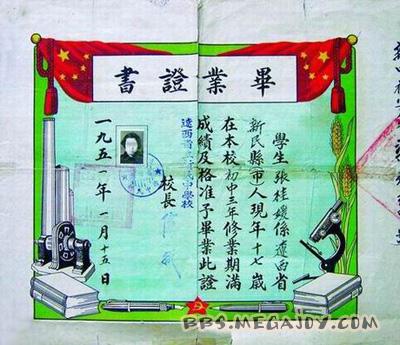 畢業證書
學生張桂媛係遼西省
新民縣市人現年十七歲
在本校初中三年修業期滿
成績及格准予畢業此證
遼西省
中學校
校長
一九五一年一月十五日
BBS.MEGAJOY.COM